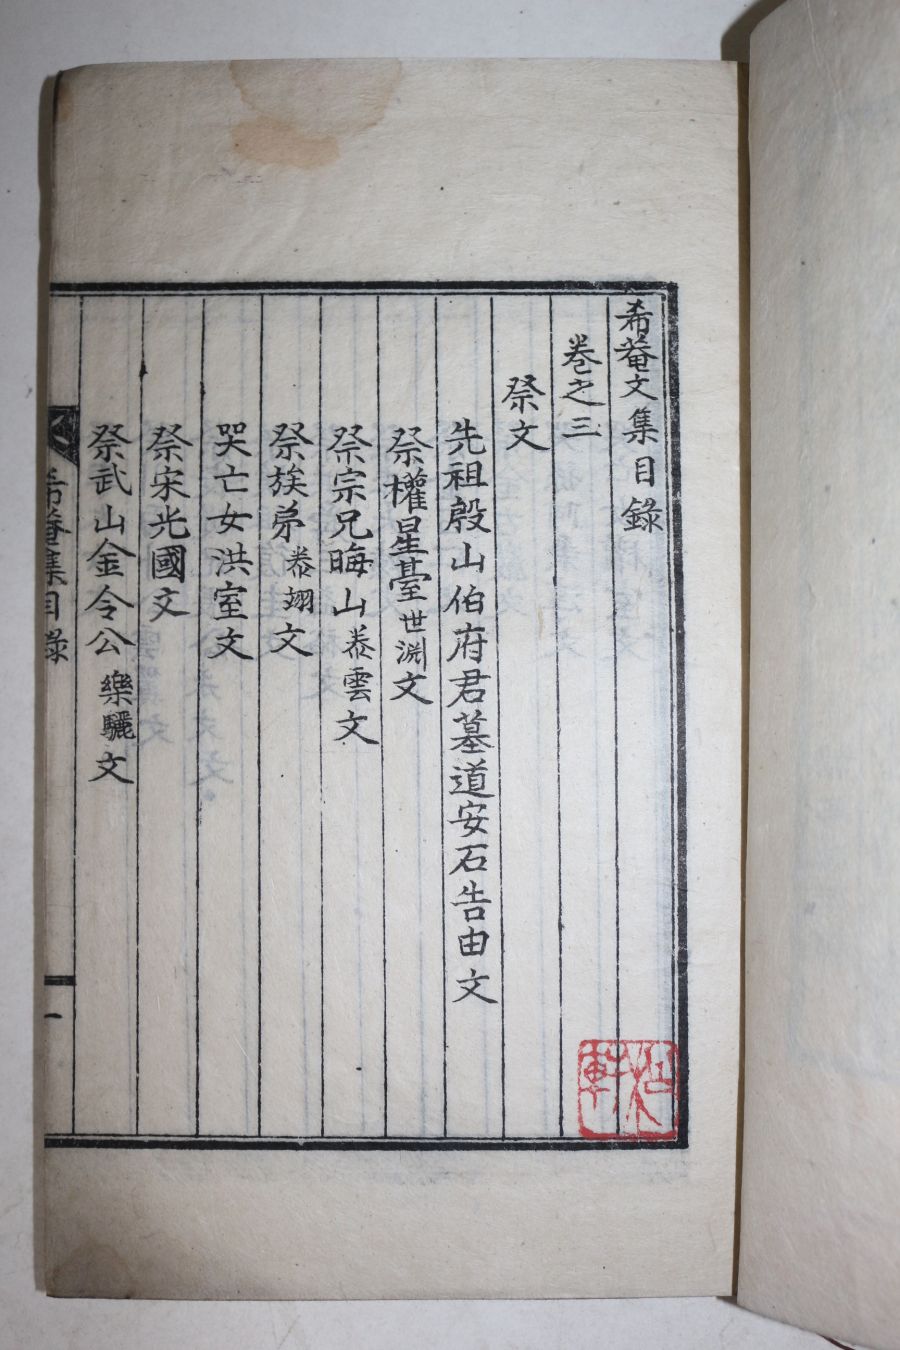 希菴文集目錄
卷之三
祭文
先祖殷山伯府君墓道安石告由文
祭權星臺世淵文
祭宗兄晦山泰雲文
祭族弟泰翊文
哭亡女洪室文
祭宋光國文
祭武山金令公樂驪文
希菴集目錄
一